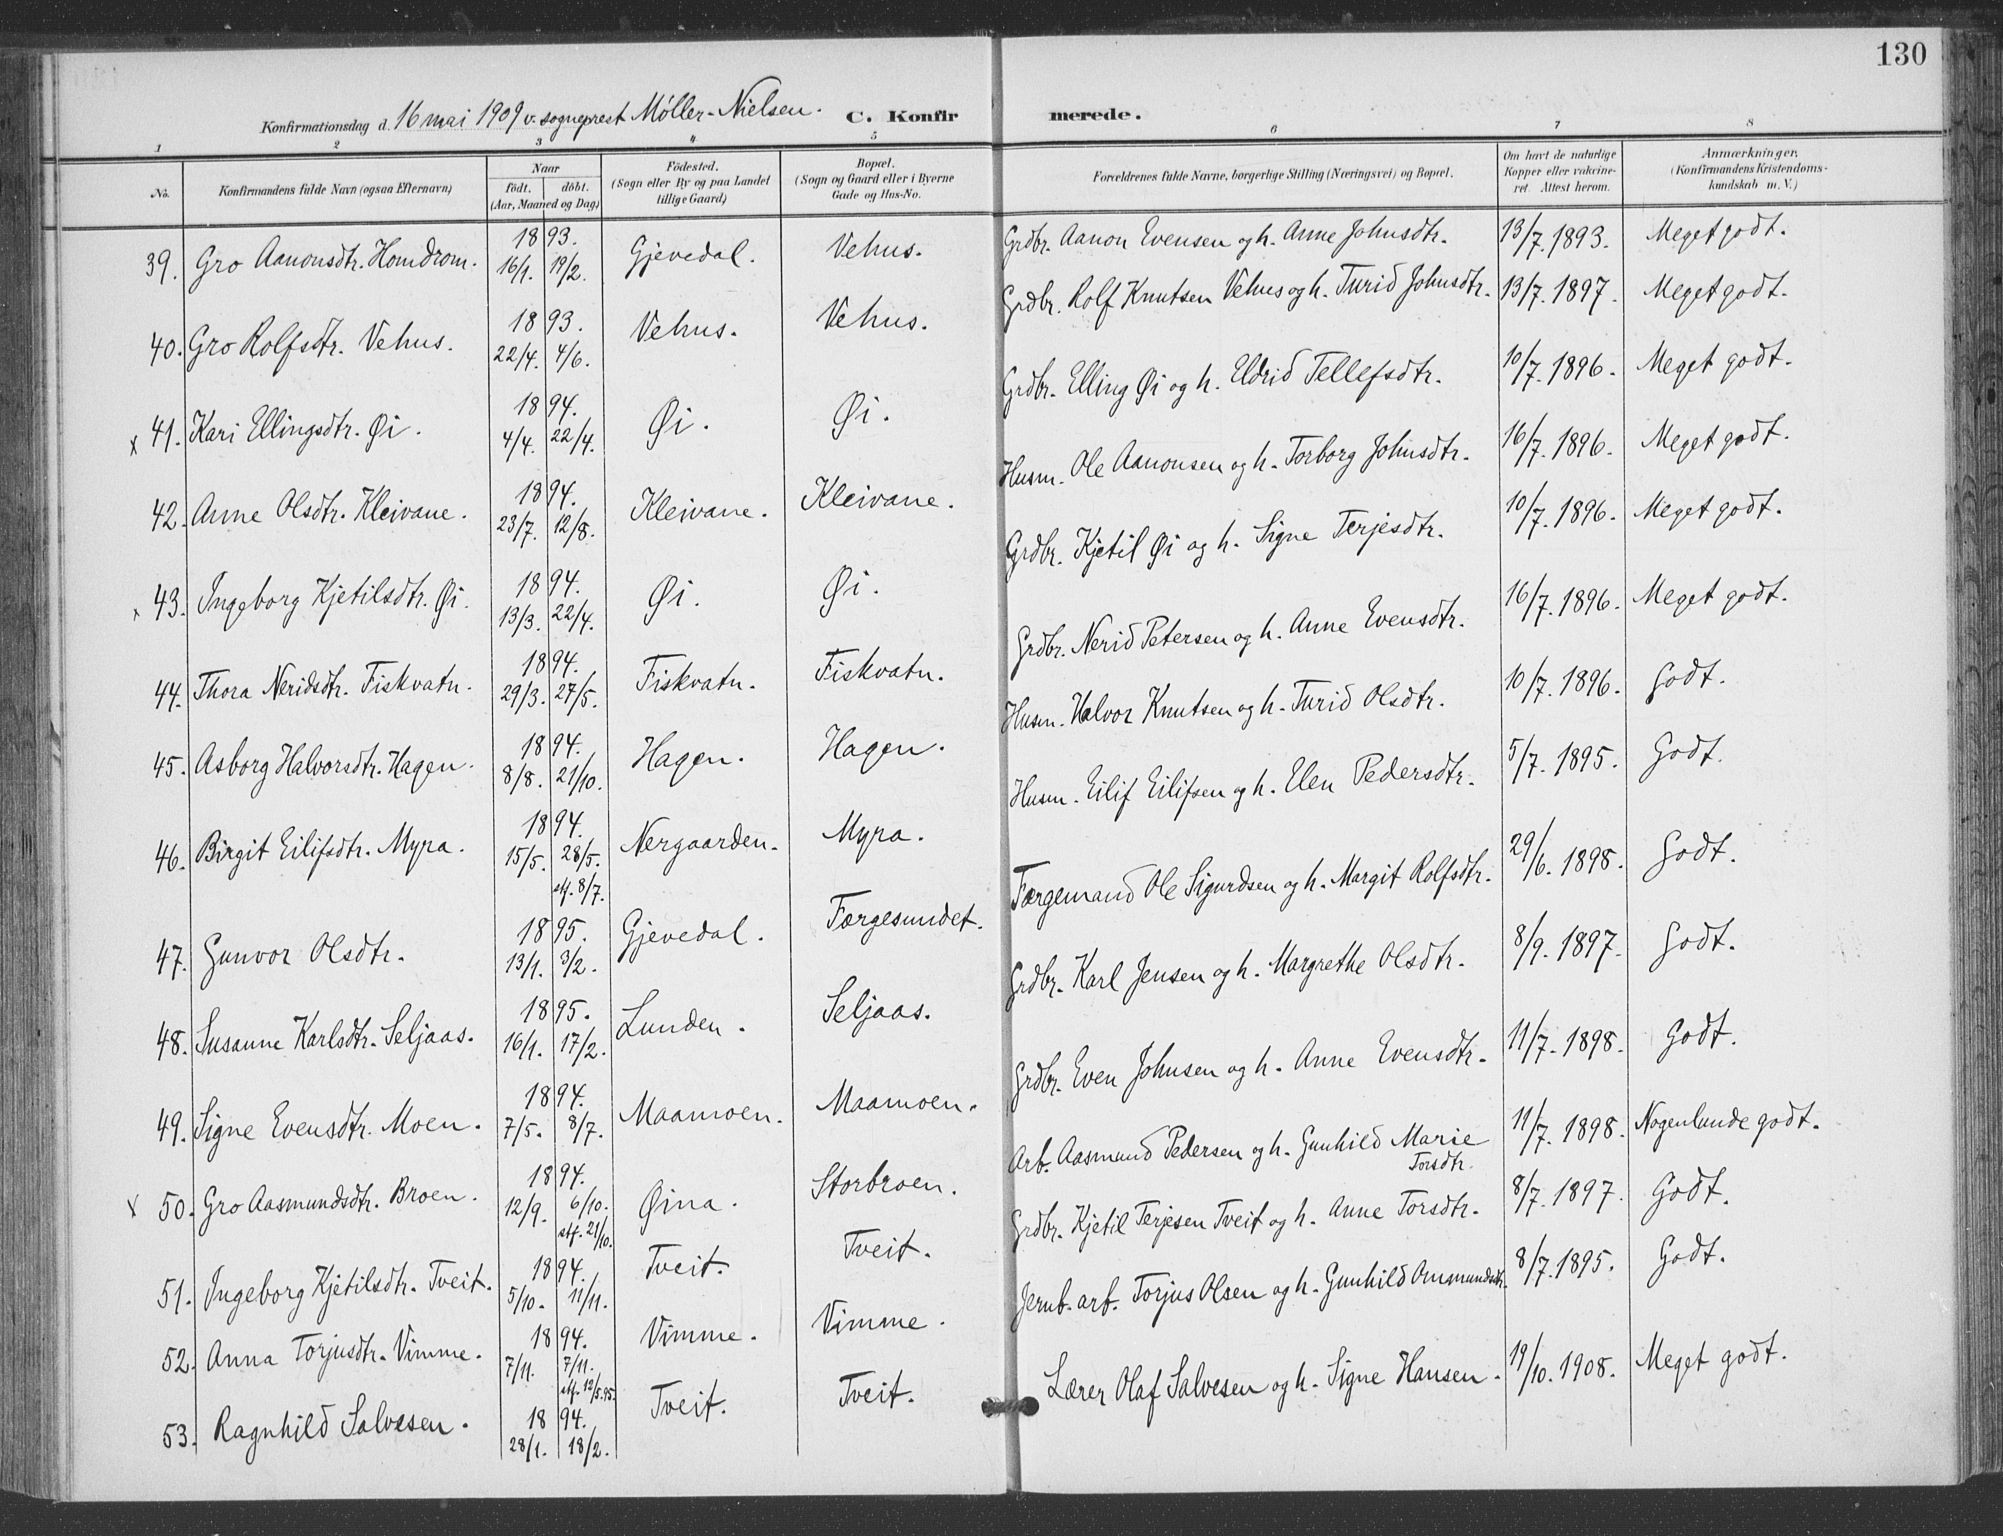 130
Konfirmationsdag d. 16 mai 1909 v. sogneprest Møller-Nielsen. C. Konfirmerede.
1 2 3 4 5 6 7 8
No. Konfirmandens fulde Navn (ogsaa Efternavn) Naar født. døbt. (Aar, Maaned og Dag) Födested. (Sogn eller By og paa Landet tillige Gaard) Bopæl. (Sogn og Gaard eller i Byerne Gade og Hus-No. Forældrenes fulde Navne, borgerlige Stilling (Næringsvei) og Bopæl. Om havt de naturlige Kopper eller vaccineret. Attest herom. Anmærkninger. (Konfirmandens Kristendomskundskab m. V.)
39. Gro Aanonsdtr. Homdrom. 1893. 16/1. 19/2. Gjevedal. Vehus. Grdbr. Aanon Evensen og h. Anne Johnsdtr. 13/7. 1893. Meget godt.
40. Gro Rolfsdtr. Vehus. 1893. 22/4. 4/6. Vehus. Vehus. Grdbr. Rolf Knutsen Vehus og h. Turid Johnsdtr. 13/7. 1897. Meget godt.
x 41. Kari Ellingsdtr. Øi. 1894. 4/4. 22/4. Øi. Øi. Grdbr. Elling Øi og h. Eldrid Tellefsdtr. 10/7. 1896. Meget godt.
42. Anne Olsdtr. Kleivane. 1894. 23/7. 12/8. Kleivane. Kleivane. Husm. Ole Aanonsen og h. Torborg Johnsdtr. 16/7. 1896. Meget godt.
x 43. Ingeborg Kjetilsdtr. Øi. 1894. 13/3. 22/4. Øi. Øi. Grdbr. Kjetil Øi og h. Signe Terjesdtr. 10/7. 1896. Meget godt.
44. Thora Neridsdtr. Fiskvatn. 1894. 29/3. 27/5. Fiskvatn. Fiskvatn. Grdbr. Nerid Petersen og h. Anne Evensdtr. 16/7. 1896. Meget godt.
45. Asborg Halvorsdtr. Hagen. 1894. 8/8. 21/10. Hagen. Hagen. Husm. Halvor Knutsen og h. Turid Olsdtr. 10/7. 1896. Godt.
46. Birgit Eilifsdtr. Myra. 1894. 15/5. 28/5. stf. 8/7. Nergaarden. Myra. Husm. Eilif Eilifsen og h. Elen Pedersdtr. 5/7. 1895. Godt.
47. Gunvor Olsdtr. 1895. 13/1. 3/2. Gjevedal. Færgesundet. Færgemand Ole Sigurdsen og h. Margit Rolfsdtr. 29/6. 1898. Godt.
48. Susanne Karlsdtr. Seljaas. 1895. 16/1. 17/2. Lunden. Seljaas. Grdbr. Karl Jensen og h. Margrethe Olsdtr. 8/9. 1897. Godt.
49. Signe Evensdtr. Moen. 1894. 7/5. 8/7. Maamoen. Maamoen. Grdbr. Even Johnsen og h. Anne Evensdtr. 11/7. 1898. Godt.
x 50. Gro Aasmundsdtr. Broen. 1894. 12/9. 6/10. stf. 21/10. Øina. Storbroen. Arb. Aasmund Pedersen og h. Gunhild Marie Torsdtr. 11/7. 1898. Nogenlunde godt.
51. Ingeborg Kjetilsdtr. Tveit. 1894. 5/10. 11/11. Tveit. Tveit. Grdbr. Kjetil Terjesen Tveit og h. Anne Torsdtr. 8/7. 1897. Godt.
52. Anna Torjusdtr. Vimme. 1894. 7/11. 7/11. stf. 12/5. 95. Vimme. Vimme. Jernb. arb. Torjus Olsen og h. Gunhild Ommundsdtr. 8/7. 1895. Godt.
53. Ragnhild Salvesen. 1894. 28/1. 18/2. Tveit. Tveit. Lærer Olaf Salvesen og h. Signe Hansen. 19/10. 1908. Meget godt.